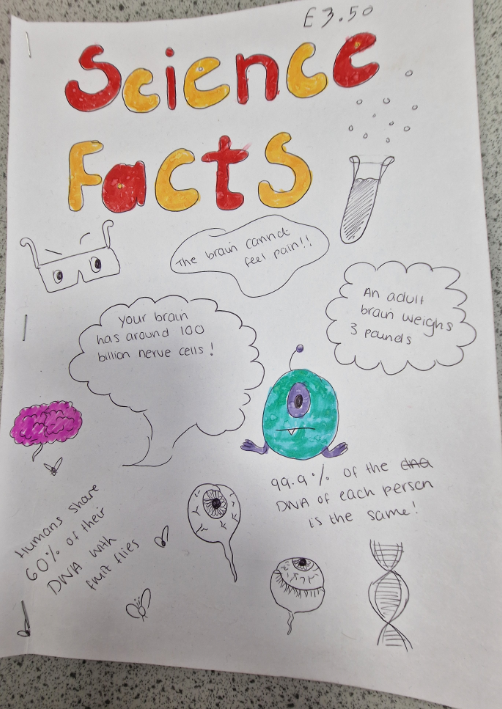 £3.50
Science
Facts
The brain cannot
feel pain!!
An adult
brain weighs
3 pounds
your brain
has around 100
billion nerve cells!
99.9% of the dna
DNA of each person
is the same!
Humans share
60% of their
DNA with
fruit flies